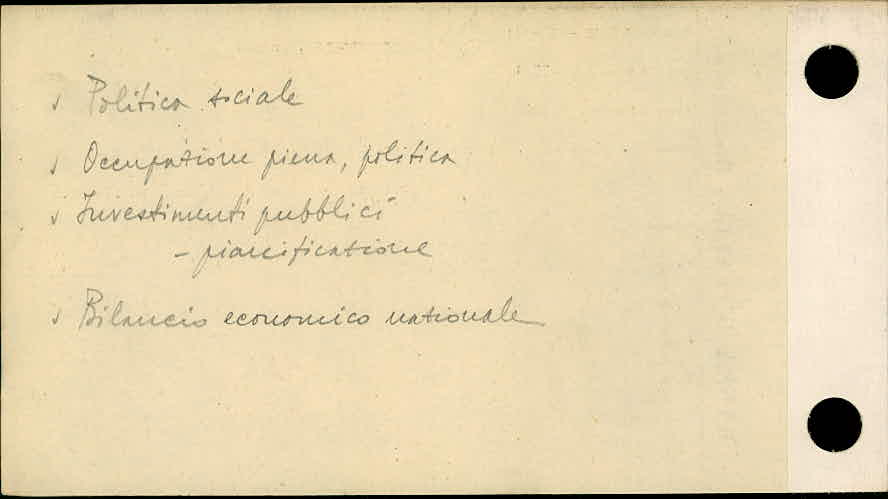 √ Politica sociale
√ Occupazione piena, politica
√ Investimenti pubblici
- pianificazione
√ Bilancio economico nazionale